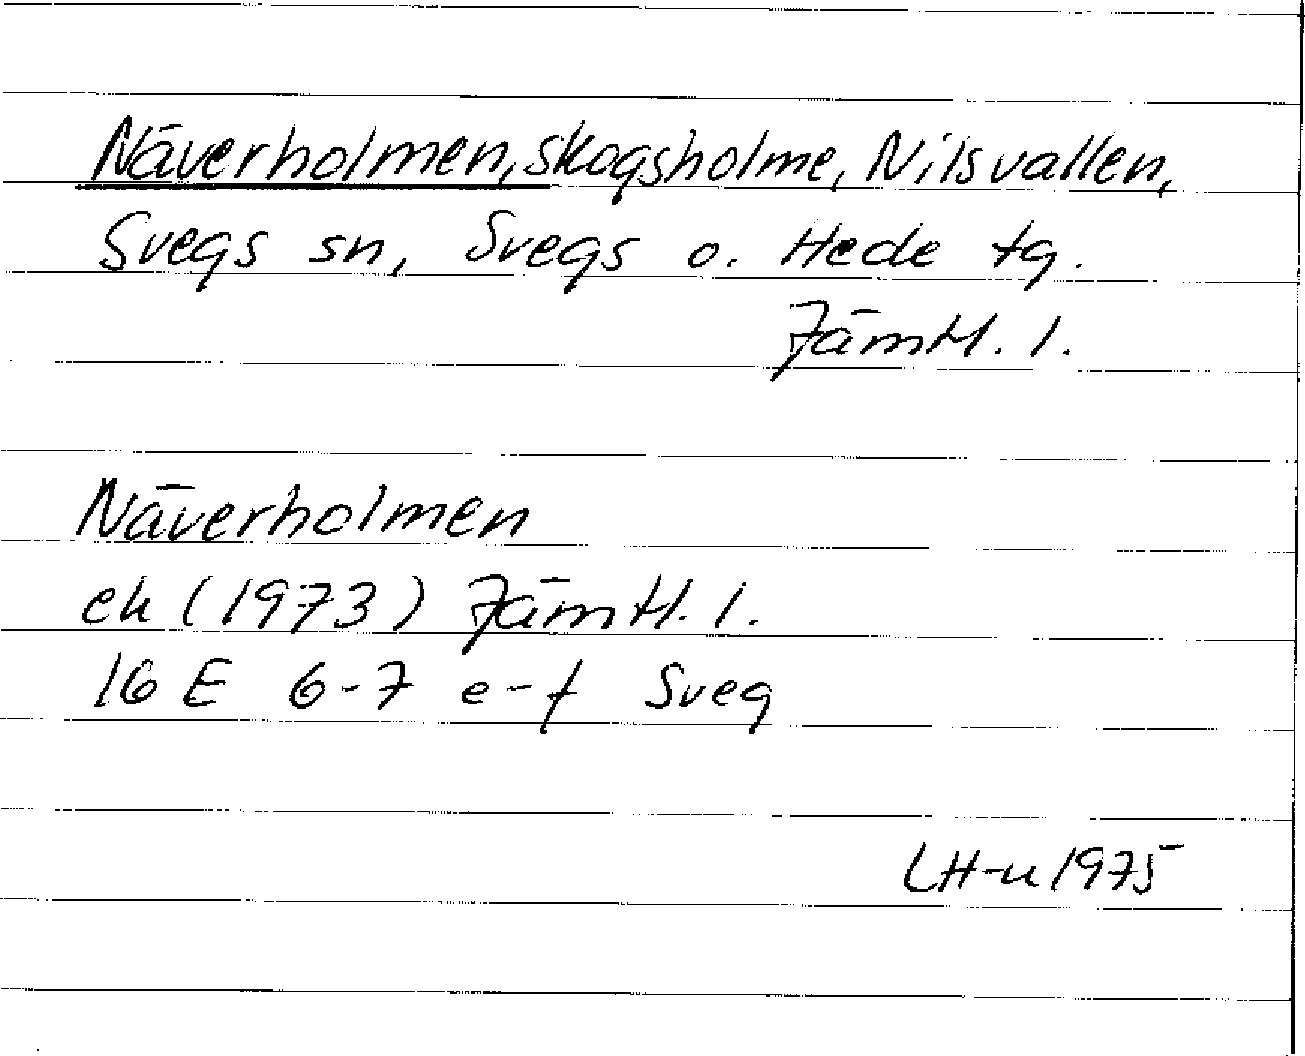 Näverholmen, skogsholme, Nilsvallen,
Svegs sn, Svegs o. Hede tg.
Jämtl. l.
Näverholmen
ek (1973) Jämtl. l.
16 E 6-7 e-f Sveg
LH-n 1975